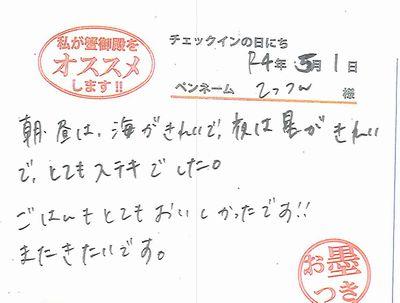 私が蟹御殿を
オススメ
します!!
チェックインの日にち
R4年 5月 1日
ペンネーム てっつん 様
朝、昼は、海がきれいで、夜は星がきれい
で、とてもステキでした。
ごはんもとてもおいしかったです!!
またきたいです。
お墨
つき